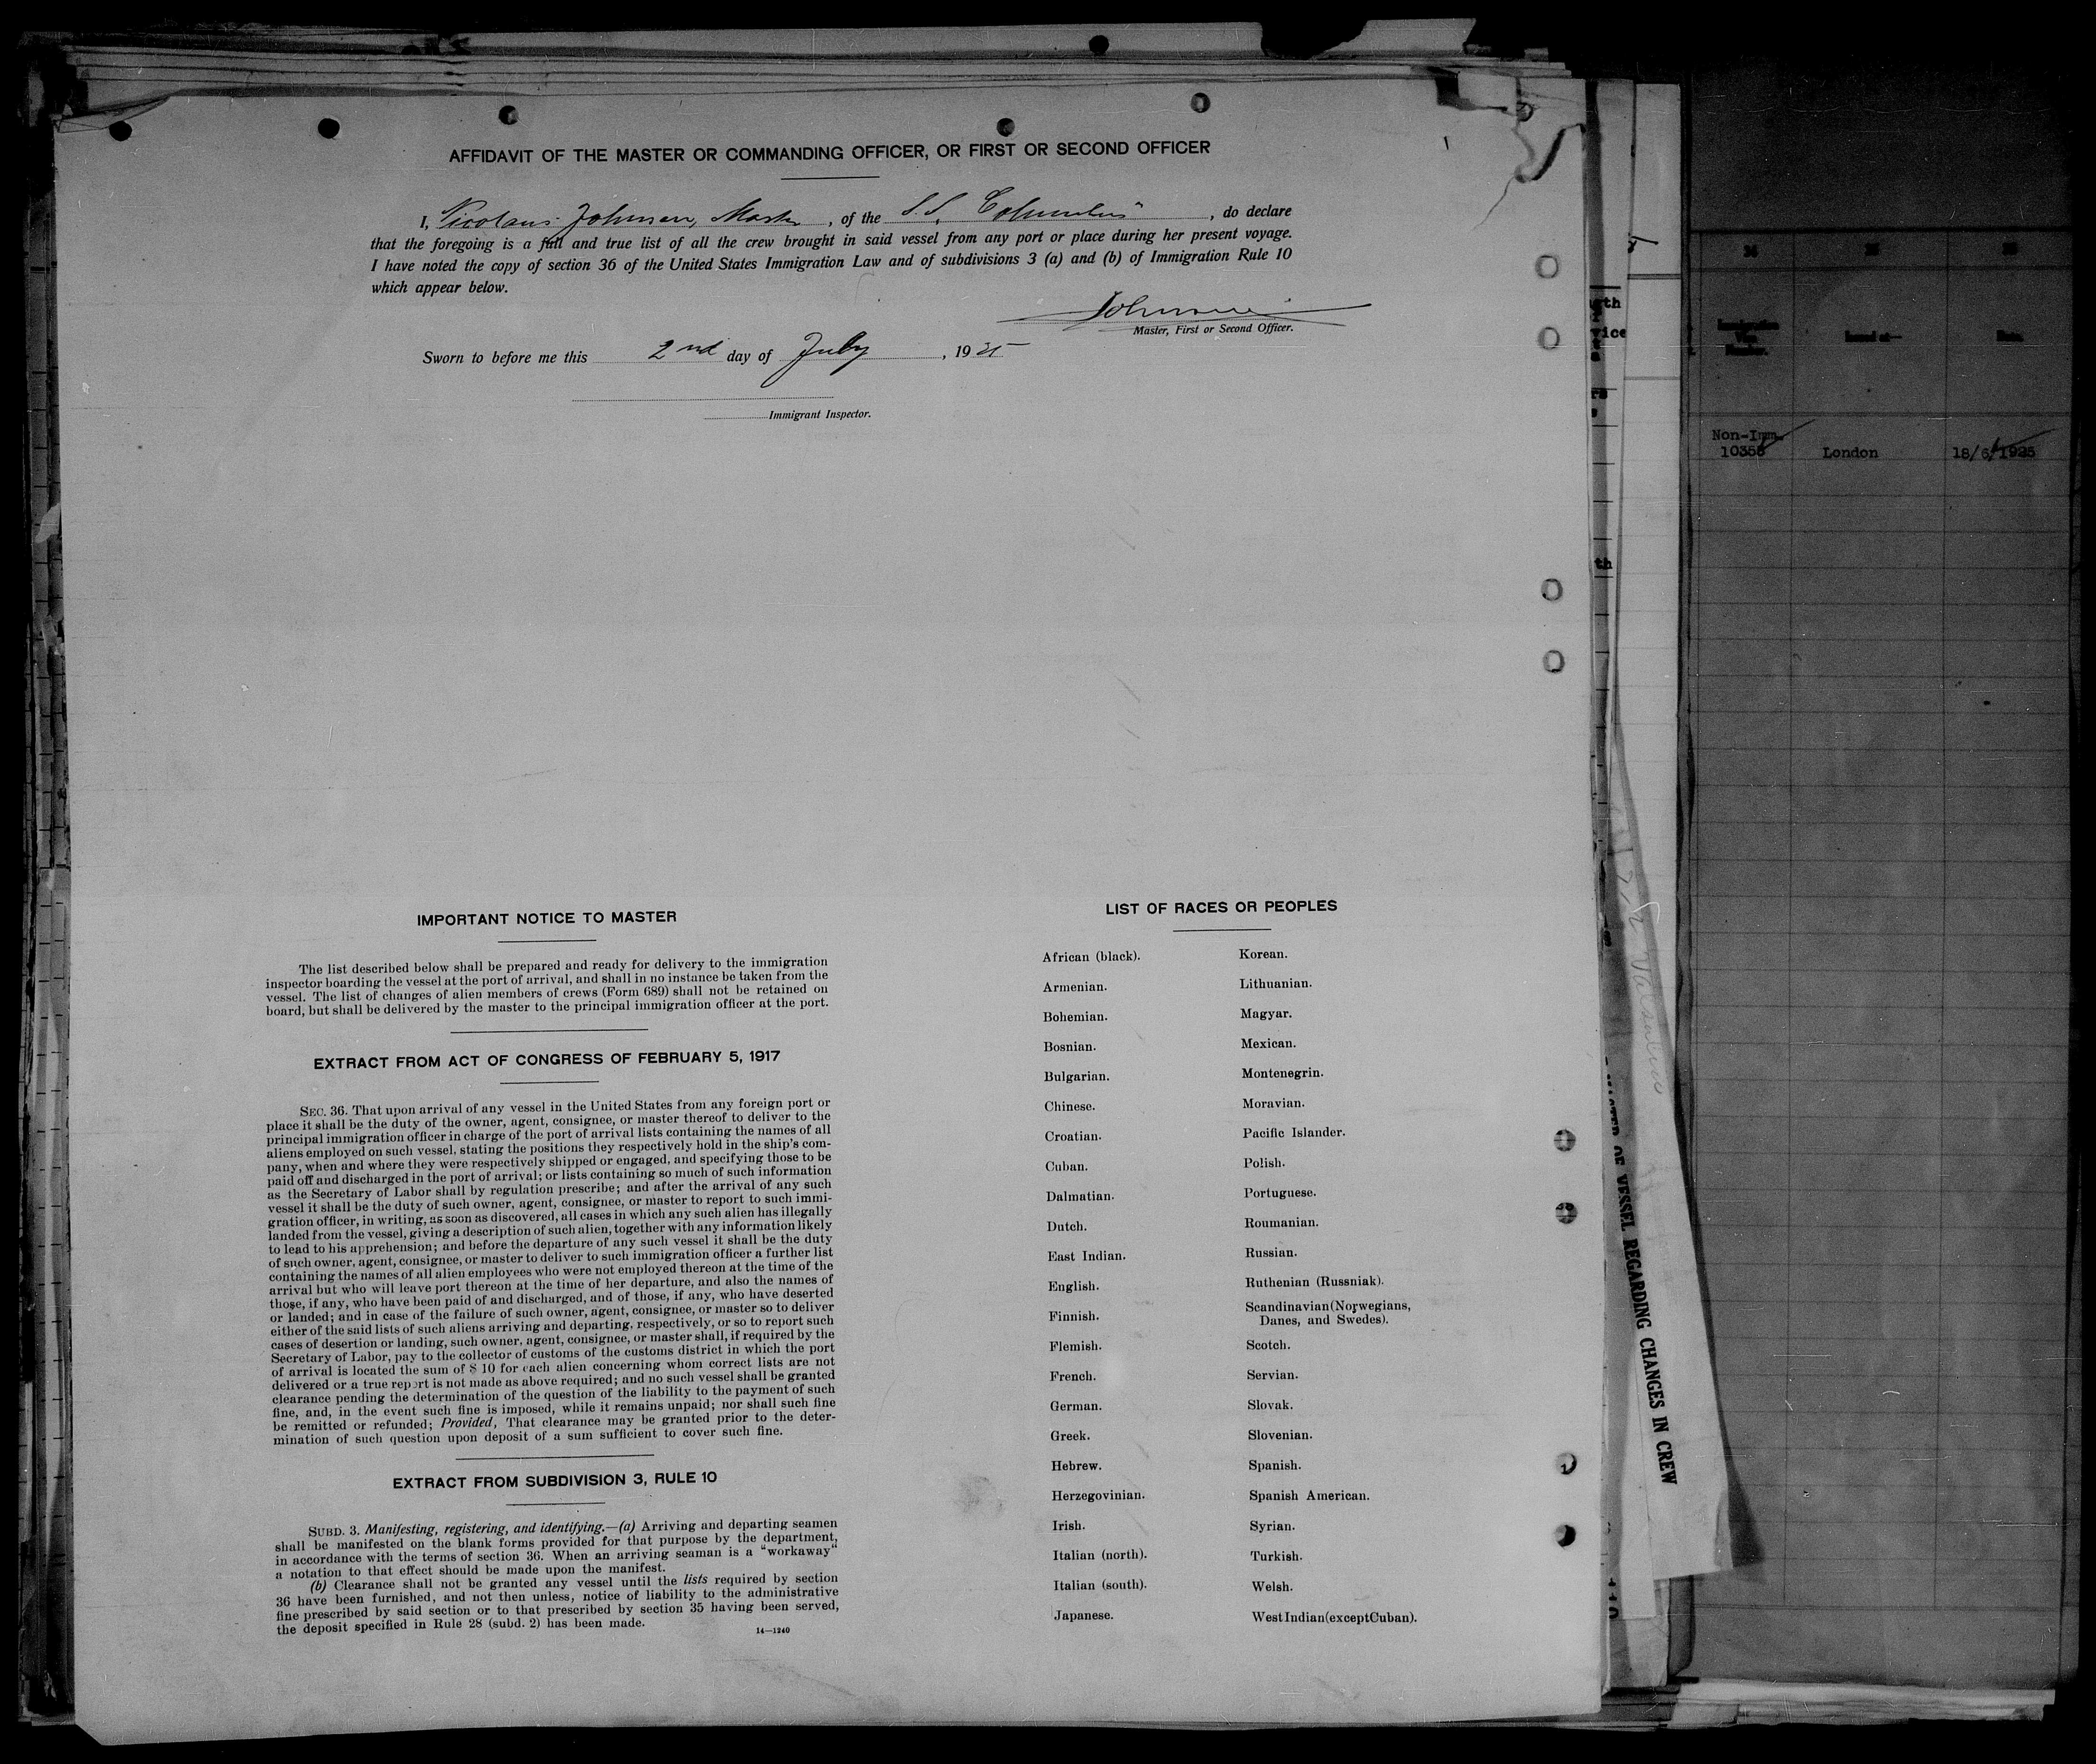 AFFIDAVIT OF THE MASTER OR COMMANDING OFFICER, OR FIRST OR SECOND OFFICER
I, Nicolaus Johnsen, Master, of the S.S. Columbus", do declare
that the foregoing is a full and true list of all the crew brought in said vessel from any port or place during her present voyage.
I have noted the copy of section 36 of the United States Immigration Law and of subdivisions 3 (a) and (b) of Immigration Rule 10
which appear below.
Johnsen
Master, First or Second Officer.
Sworn to before me this 2nd day of July, 1925
Immigrant Inspector.
IMPORTANT NOTICE TO MASTER
The list described below shall be prepared and ready for delivery to the immigration
inspector boarding the vessel at the port of arrival, and shall in no instance be taken from the
vessel. The list of changes of alien members of crews (Form 689) shall not be retained on
board, but shall be delivered by the master to the principal immigration officer at the port.
EXTRACT FROM ACT OF CONGRESS OF FEBRUARY 5, 1917
SEC. 36. That upon arrival of any vessel in the United States from any foreign port or
place it shall be the duty of the owner, agent, consignee, or master thereof to deliver to the
principal immigration officer in charge of the port of arrival lists containing the names of all
aliens employed on such vessel, stating the positions they respectively hold in the ship's com-
pany, when and where they were respectively shipped or engaged, and specifying those to be
paid off and discharged in the port of arrival; or lists containing so much of such information
as the Secretary of Labor shall by regulation prescribe; and after the arrival of any such
vessel it shall be the duty of such owner, agent, consignee, or master to report to such immi-
gration officer, in writing, as soon as discovered, all cases in which any such alien has illegally
landed from the vessel, giving a description of such alien, together with any information likely
to lead to his apprehension; and before the departure of any such vessel it shall be the duty
of such owner, agent, consignee, or master to deliver to such immigration officer a further list
containing the names of all alien employees who were not employed thereon at the time of the
arrival but who will leave port thereon at the time of her departure, and also the names of
those, if any, who have been paid of and discharged, and of those, if any, who have deserted
or landed; and in case of the failure of such owner, agent, consignee, or master so to deliver
either of the said lists of such aliens arriving and departing, respectively, or so to report such
cases of desertion or landing, such owner, agent, consignee, or master shall, if required by the
Secretary of Labor, pay to the collector of customs of the customs district in which the port
of arrival is located the sum of $ 10 for each alien concerning whom correct lists are not
delivered or a true report is not made as above required; and no such vessel shall be granted
clearance pending the determination of the question of the liability to the payment of such
fine, and, in the event such fine is imposed, while it remains unpaid; nor shall such fine
be remitted or refunded; Provided, That clearance may be granted prior to the deter-
mination of such question upon deposit of a sum sufficient to cover such fine.
EXTRACT FROM SUBDIVISION 3, RULE 10
SUBD. 3. Manifesting, registering, and identifying.—(a) Arriving and departing seamen
shall be manifested on the blank forms provided for that purpose by the department,
in accordance with the terms of section 36. When an arriving seaman is a "workaway"
a notation to that effect should be made upon the manifest.
(b) Clearance shall not be granted any vessel until the lists required by section
36 have been furnished, and not then unless, notice of liability to the administrative
fine prescribed by said section or to that prescribed by section 35 having been served,
the deposit specified in Rule 28 (subd. 2) has been made.
14—1240
LIST OF RACES OR PEOPLES
African (black).
Armenian.
Bohemian.
Bosnian.
Bulgarian.
Chinese.
Croatian.
Cuban.
Dalmatian.
Dutch.
East Indian.
English.
Finnish.
Flemish.
French.
German.
Greek.
Hebrew.
Herzegovinian.
Irish.
Italian (north).
Italian (south).
Japanese.
Korean.
Lithuanian.
Magyar.
Mexican.
Montenegrin.
Moravian.
Pacific Islander.
Polish.
Portuguese.
Roumanian.
Russian.
Ruthenian (Russniak).
Scandinavian (Norwegians,
Danes, and Swedes).
Scotch.
Servian.
Slovak.
Slovenian.
Spanish.
Spanish American.
Syrian.
Turkish.
Welsh.
West Indian (except Cuban).
OF VESSEL REGARDING CHANGES IN CREW
Non-Imm.
10358 London 18/6/1925